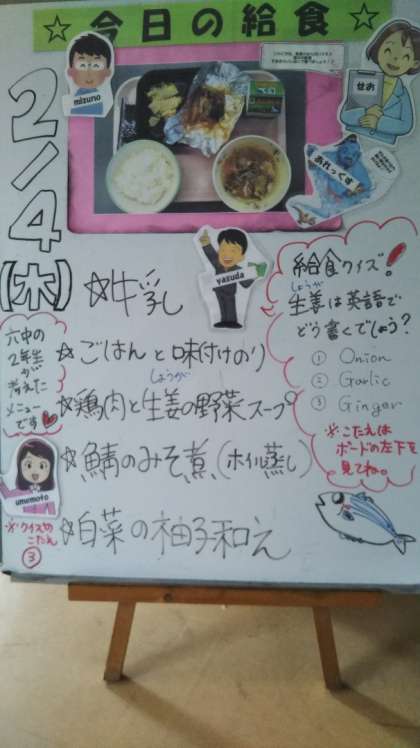 ☆今日の給食☆
mizuno
せお
あれっくす
2/4
(木)
yasuda
☆牛乳
☆ごはんと味付けのり
しょうが
☆鶏肉と生姜の野菜スープ
☆鯖のみそ煮(ホイル蒸し)
☆白菜の柚子和え
六中の
2年生
が
考えた
メニュー
です♥
umemoto
※クイズの
こたえ
③
給食クイズ!
しょうが
生姜は英語で
どう書くでしょう?
① Onion
② Garlic
③ Ginger
※こたえは
ボードの左下を
見てね。